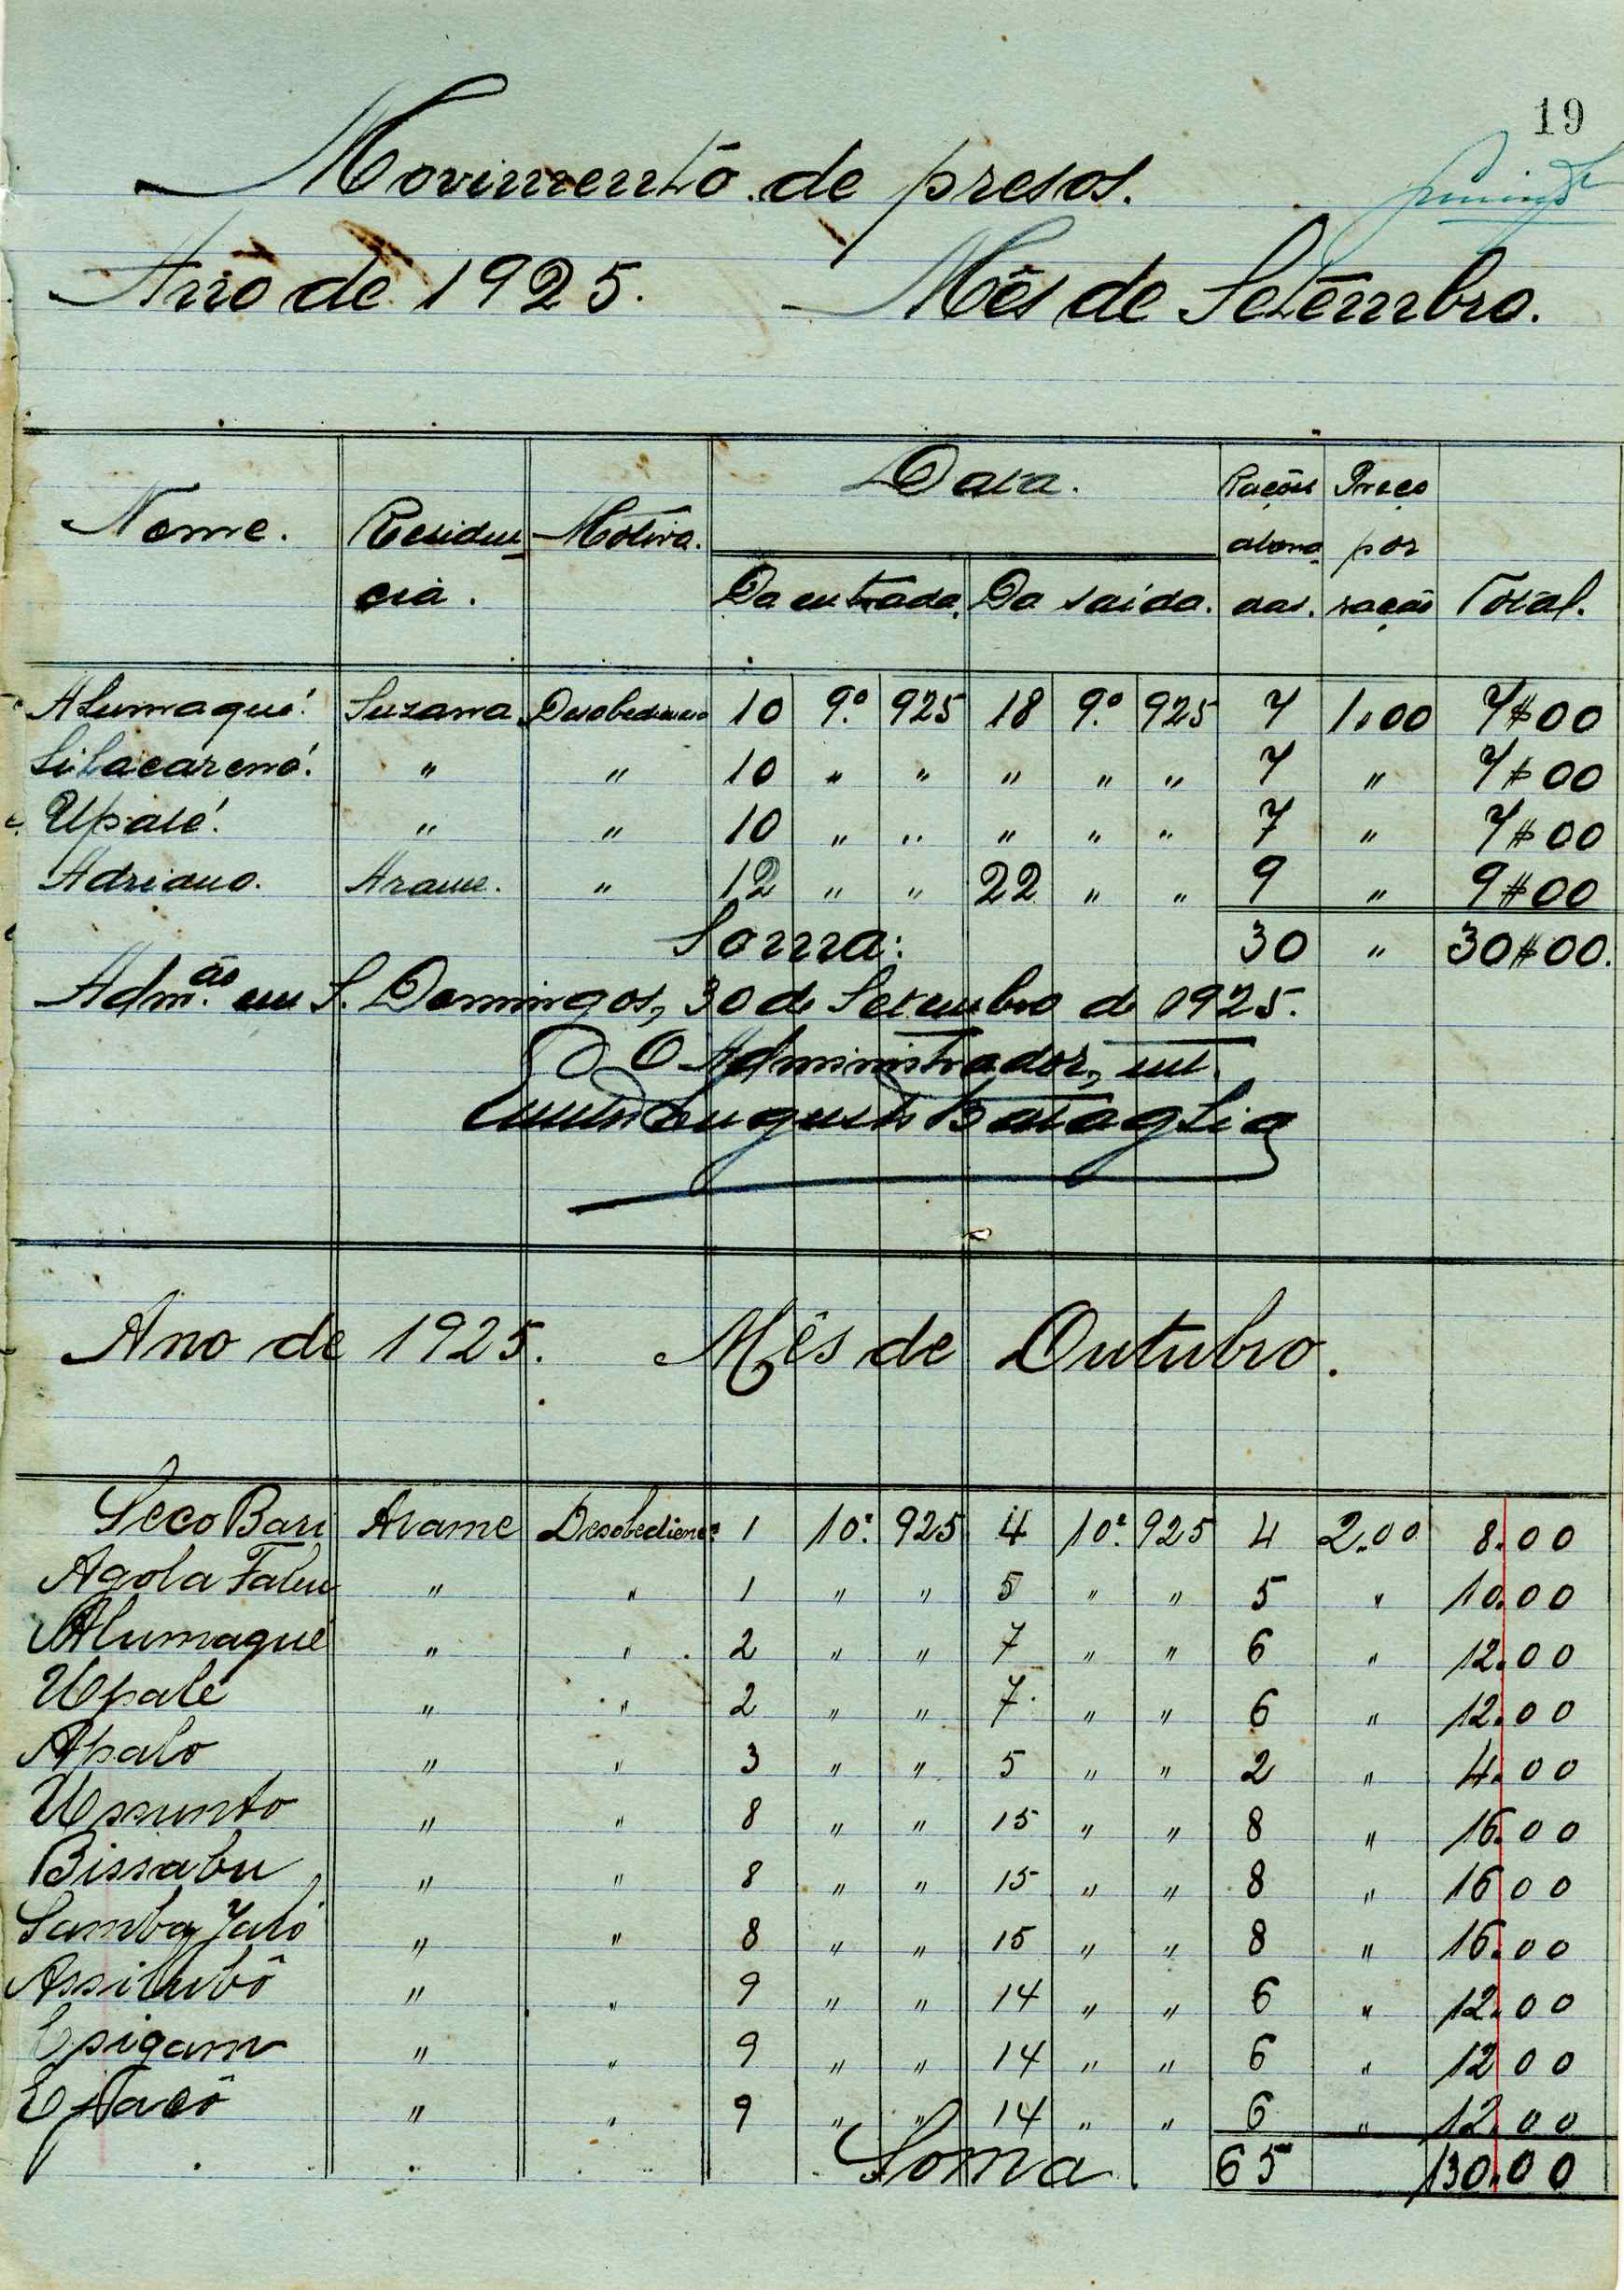 19
Movimento de presos.
Ano de 1925. Mês de Setembro.
Nome. Residencia. Motivo. Data. Da entrada. Da saída. Rações abonadas. Preço por ração Total.
Alumaqué. Suzana Desobediencia 10 9.º 925 18 9.º 925 7 1.00 7$00
Silacarenó. " " 10 " " " " " 7 " 7$00
Upalé. " " 10 " " " " " 7 " 7$00
Adriano. Arame. " 12 " " 22 " " 9 " 9$00
Soma: 30 " 30$00.
Adm.ão em S. Domingos, 30 de Setembro de 1925.
O Administrador, int.
Augusto Bataglia
Ano de 1925. Mês de Outubro.
Seco Bari Arame Desobedienc.ª 1 10.º 925 4 10.º 925 4 2.00 8.00
Agola Fabu " " 1 " " 5 " " 5 " 10.00
Alumaqué " " 2 " " 7 " " 6 " 12.00
Upalé " " 2 " " 7 " " 6 " 12.00
Apalo " " 3 " " 5 " " 2 " 4.00
Ussunto " " 8 " " 15 " " 8 " 16.00
Bissabu " " 8 " " 15 " " 8 " 16 00
Samba Jaló " " 8 " " 15 " " 8 " 16.00
Assilubô " " 9 " " 14 " " 6 " 12.00
Epigam " " 9 " " 14 " " 6 " 12 00
" " 9 " " 14 " " 6 " 12.00
Soma 65 130.00